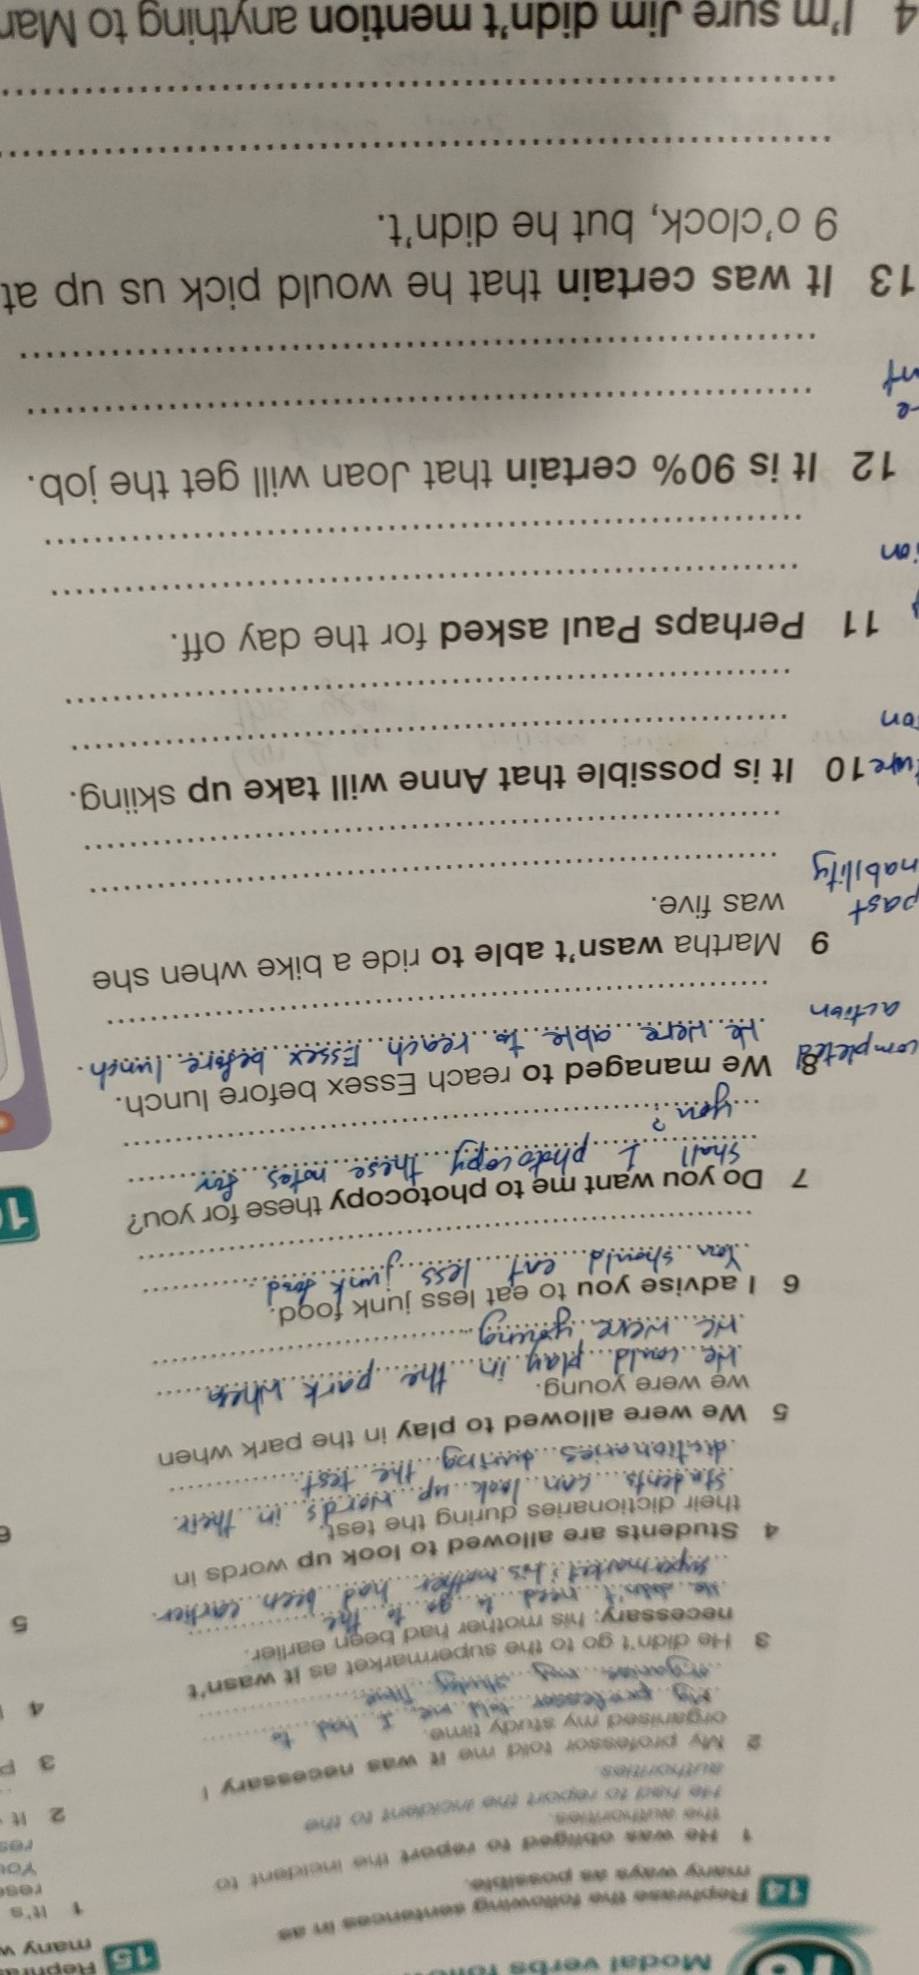 16 Modal verbs
14 Rephrase the following sentences in as
many ways as possible.
1 He was obliged to report the incident to
the authorities.
He had to report the incident to the
authorities.
2 My professor told me it was necessary I
organised my study time.
My professor told me I had to
organise my study time
3 He didn't go to the supermarket as it wasn't
necessary; his mother had been earlier.
He didn't need to go to the
supermarket; his mother had been earlier.
4 Students are allowed to look up words in
their dictionaries during the test.
Students can look up words in their
dictionaries during the test.
5 We were allowed to play in the park when
we were young.
We could play in the park when
we were young
6 I advise you to eat less junk food.
You should eat less junk food.
7 Do you want me to photocopy these for you?
Shall I photocopy these notes for
you?
completed
action
8 We managed to reach Essex before lunch.
We were able to reach Essex before lunch.
9 Martha wasn't able to ride a bike when she
was five.
past
nability
10 It is possible that Anne will take up skiing.
ture
on
11 Perhaps Paul asked for the day off.
ion
12 It is 90% certain that Joan will get the job.
13 It was certain that he would pick us up at
9 o'clock, but he didn't.
4 I'm sure Jim didn't mention anything to Mar
15 Rephra
many w
1 It's
rese
You
res
2 It
3 P
4
5
6
1